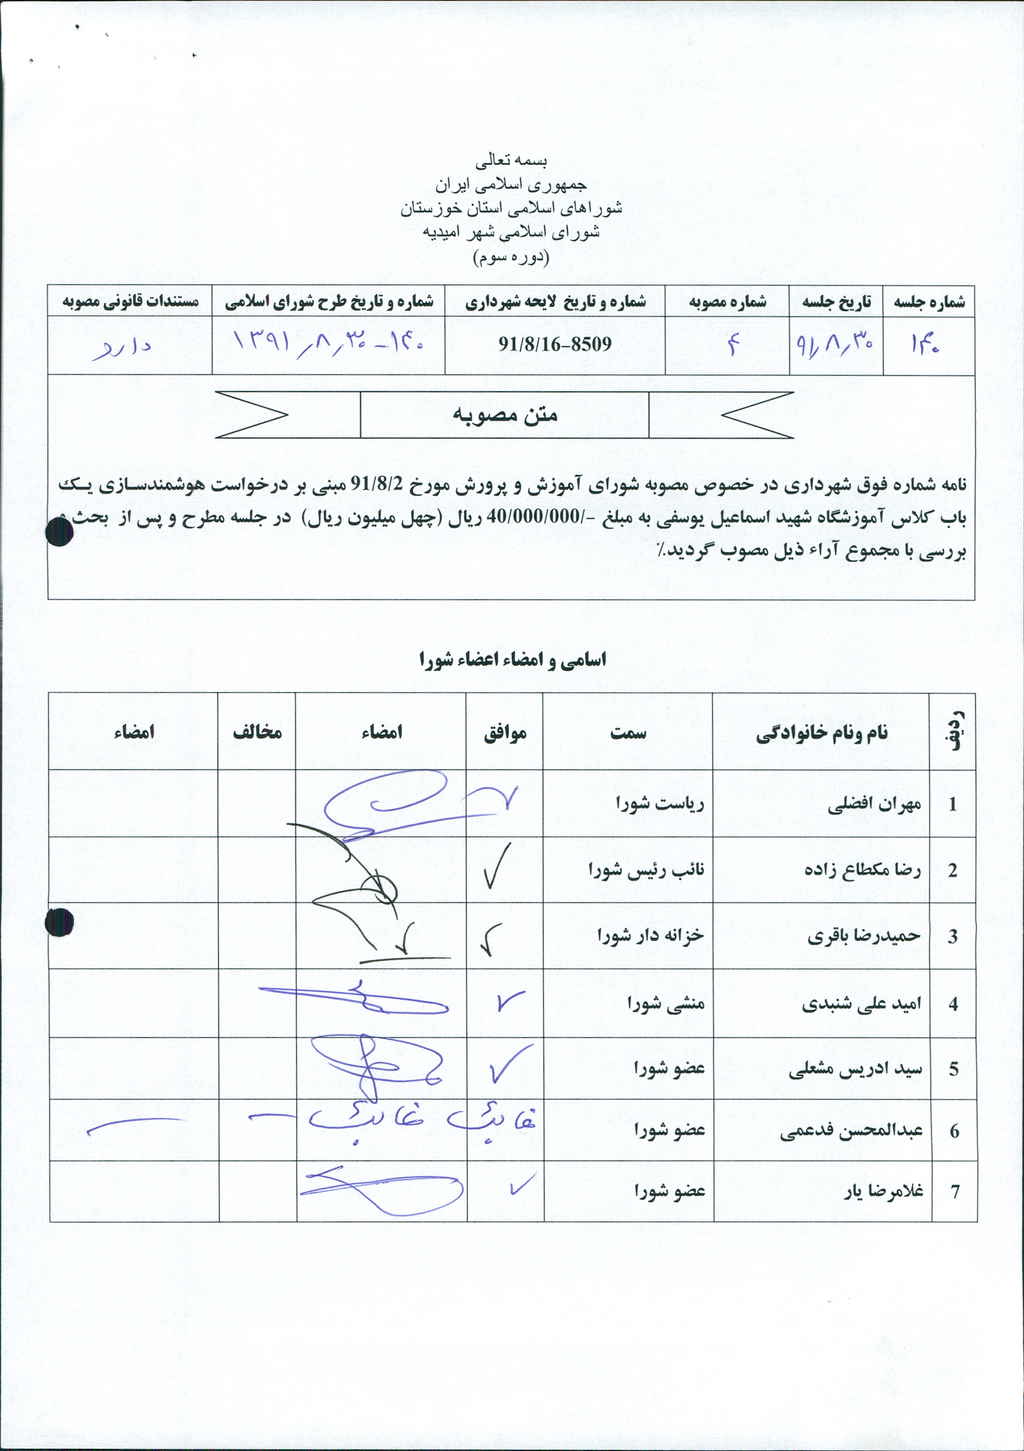 بسمه تعالی
جمهوری اسلامی ایران
شوراهای اسلامی استان خوزستان
شورای اسلامی شهر امیدیه
(دوره سوم)
شماره جلسه تاریخ جلسه شماره مصوبه شماره و تاریخ لایحه شهرداری شماره و تاریخ طرح شورای اسلامی مستندات قانونی مصوبه
۱۴۰ ۹۱٫۸٫۳۰ ۴ 91/8/16-8509 ۱۴۰-۱۳۹۱٫۸٫۳۰ دارد
متن مصوبه
نامه شماره فوق شهرداری در خصوص مصوبه شورای آموزش و پرورش مورخ 91/8/2 مبنی بر درخواست هوشمندسازی یک
باب کلاس آموزشگاه شهید اسماعیل یوسفی به مبلغ -/40/000/000 ریال (چهل میلیون ریال) در جلسه مطرح و پس از بحث و
بررسی با مجموع آراء ذیل مصوب گردید٪
اسامی و امضاء اعضاء شورا
ردیف نام ونام خانوادگی سمت موافق امضاء مخالف امضاء
1 مهران افضلی ریاست شورا ✓
2 رضا مکطاع زاده نائب رئیس شورا ✓
3 حمیدرضا باقری خزانه دار شورا ✓
4 امید علی شنبدی منشی شورا ✓
5 سید ادریس مشعلی عضو شورا ✓
6 عبدالمحسن فدعمی عضو شورا غایب غایب — —
7 غلامرضا یار عضو شورا ✓